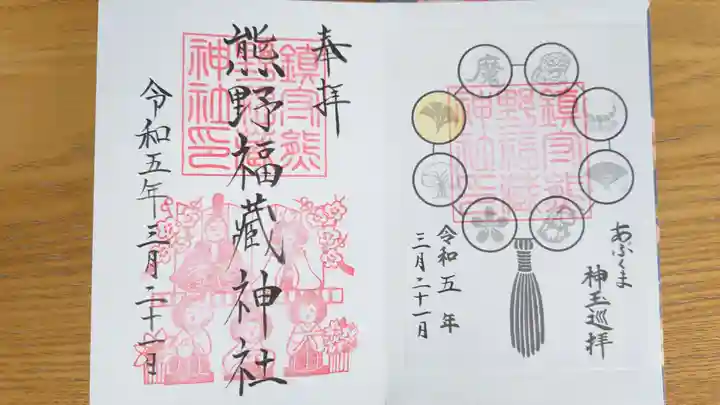 奉拝
鎮守熊
野福蔵
神社印
熊野福藏神社
令和五年三月二十一日
魔
鎮守熊
野福蔵
神社印
あぶくま
神玉巡拝
令和五年
三月二十一日